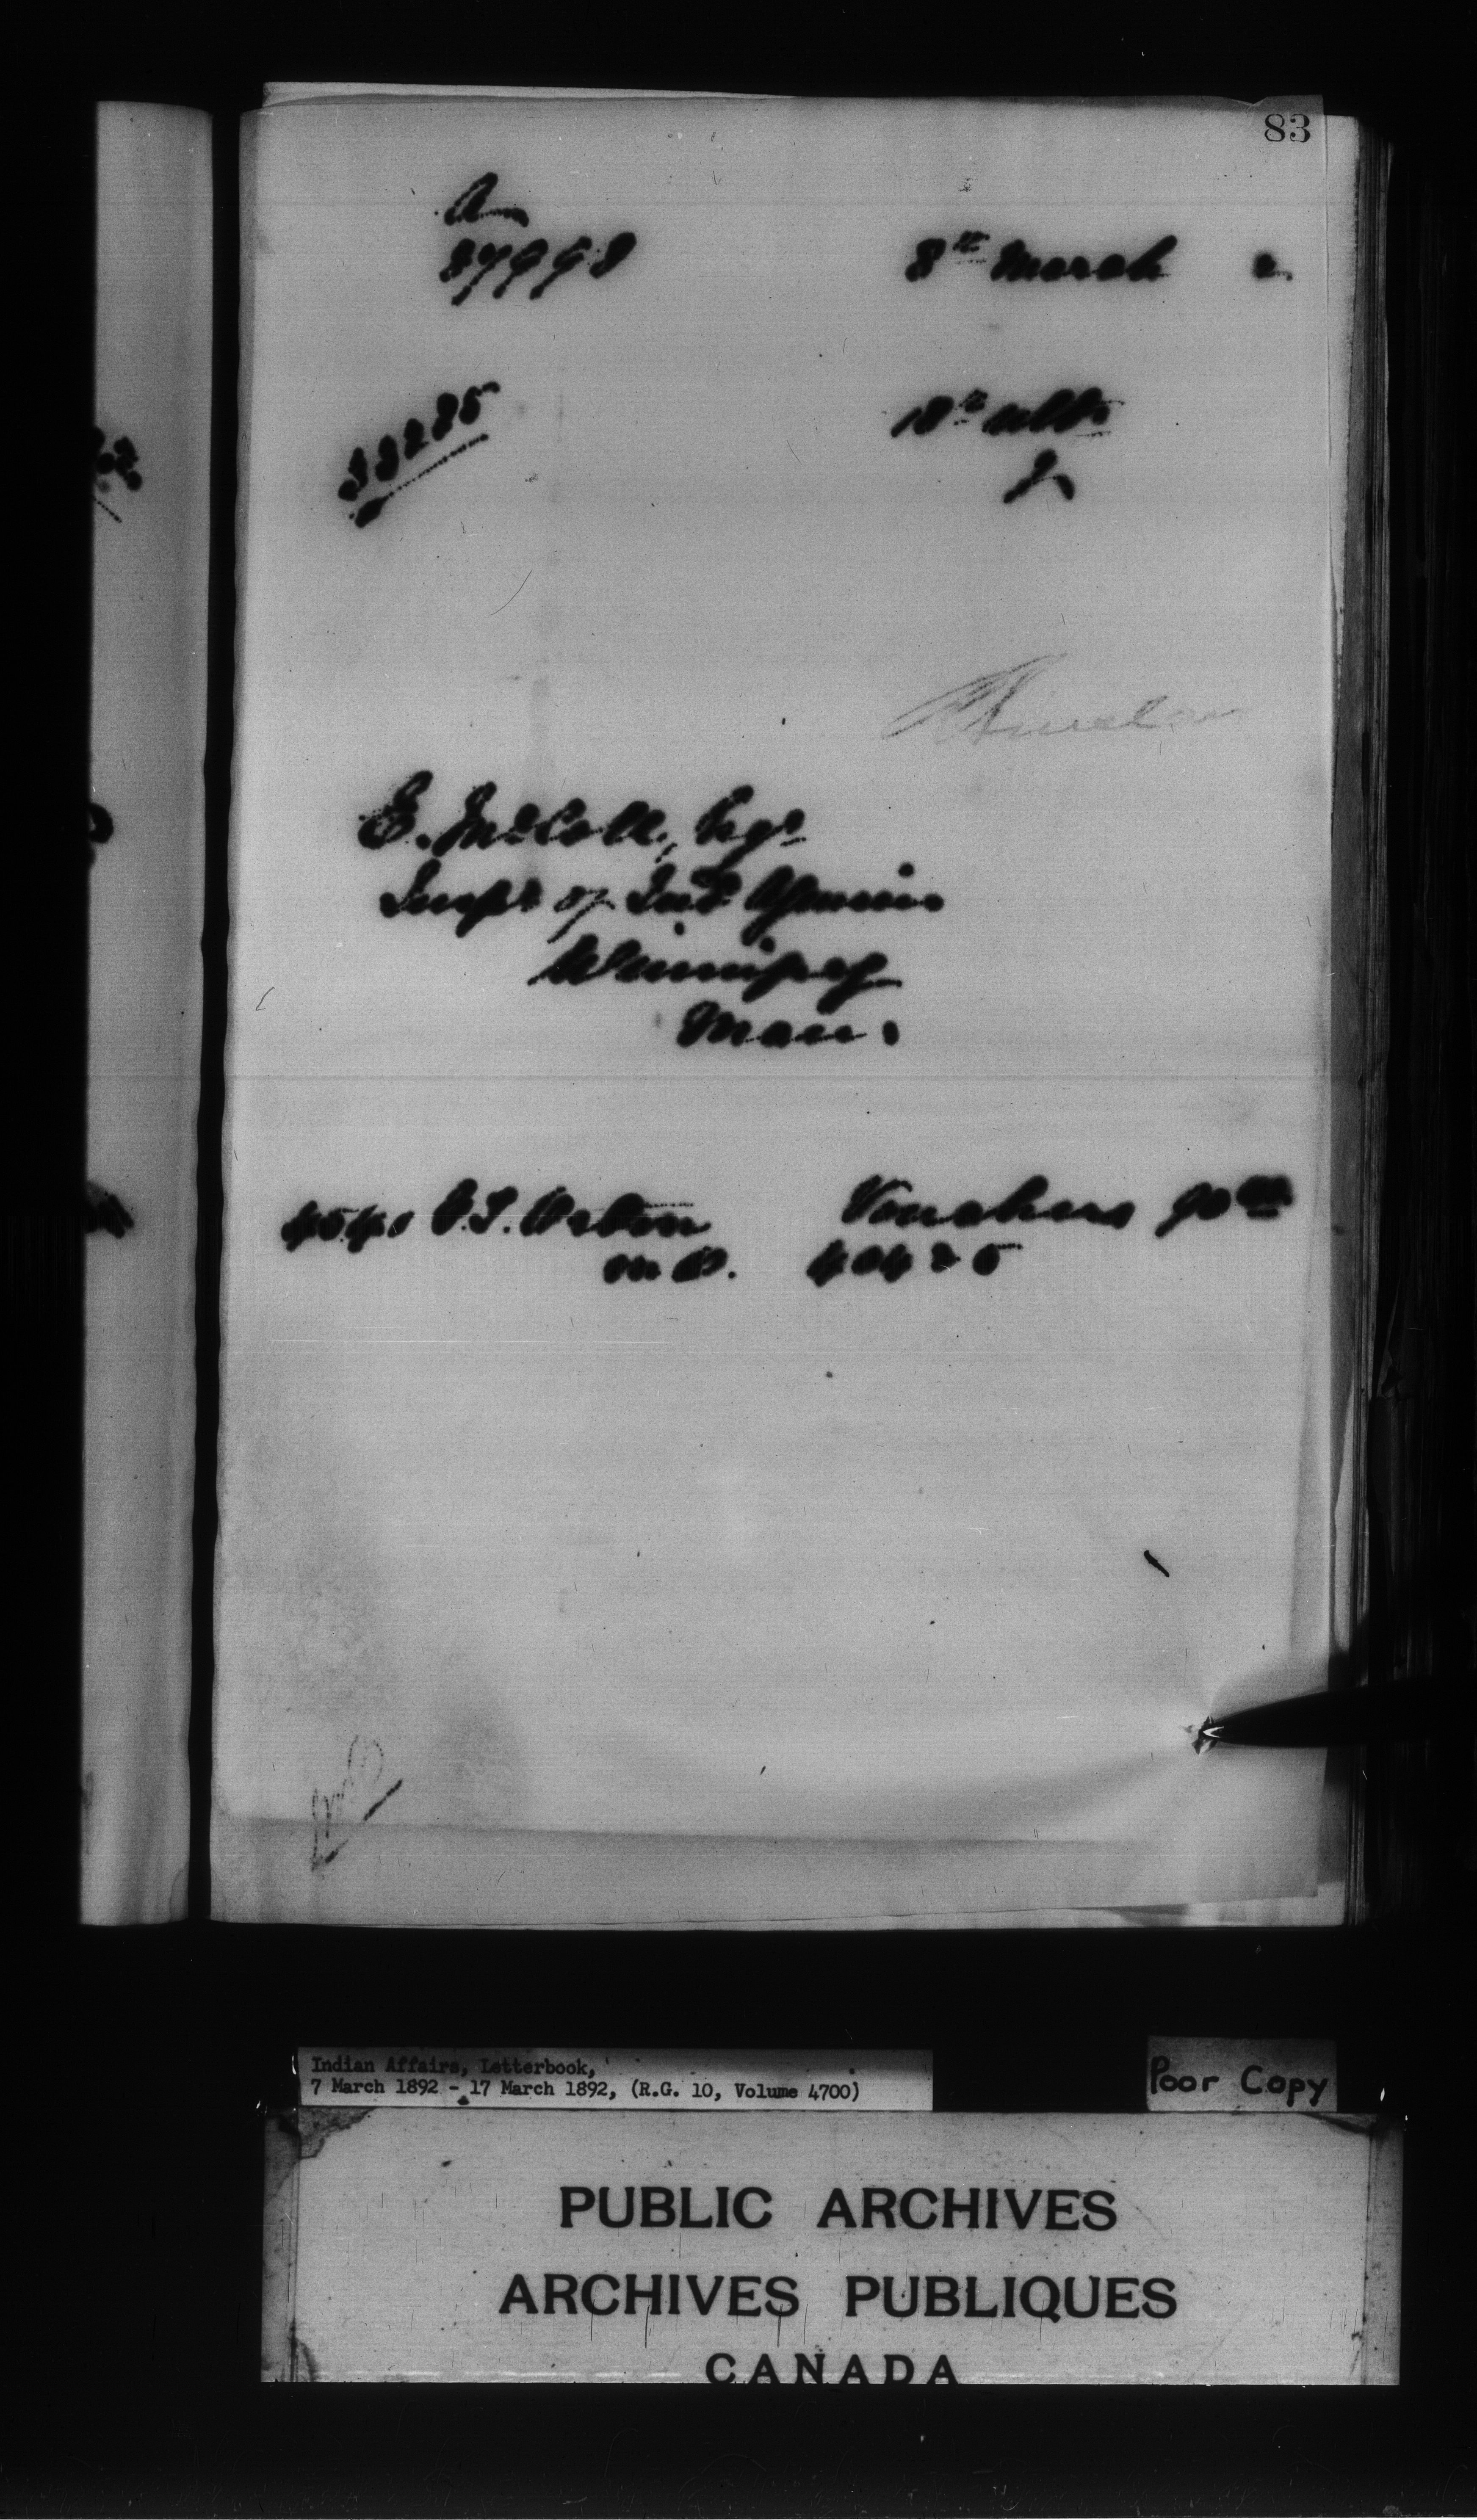 83
A
87998
8th March 2.
33235
18th ulto
E. McColl, Esqr
Inspr of Ind Agencies
Winnipeg
Man.
4540 Vouchers 90 00
M.D. 40425
Indian Affairs, Letterbook,
7 March 1892 - 17 March 1892, (R.G. 10, Volume 4700)
Poor Copy
PUBLIC ARCHIVES
ARCHIVES PUBLIQUES
CANADA